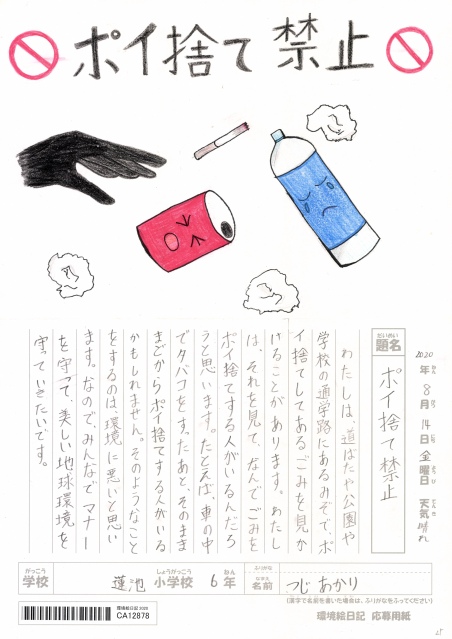 ポイ捨て禁止
2020年8月14日金曜日 天気 晴れ
だいめい
題名 ポイ捨て禁止
わたしは、道ばたや公園や
学校の通学路にあるみぞで、ポ
イ捨てしてあるごみを見か
けることがあります。わたし
は、それを見て、なんでごみを
ポイ捨てする人がいるんだろ
うと思います。たとえば、車の中
でタバコをすったあと、そのまま
まどからポイ捨てする人がいる
かもしれません。そのようなこと
をするのは、環境に悪いと思い
ます。なので、みんなでマナー
を守って、美しい地球環境を
守っていきたいです。
がっこう
学校 蓮池 しょうがっこう 小学校 6 ねん 年
ふりがな
なまえ
名前 つじ あかり
(漢字で名前を書いた場合は、ふりがなをふってください)
環境絵日記2020
CA12878
環境絵日記 応募用紙